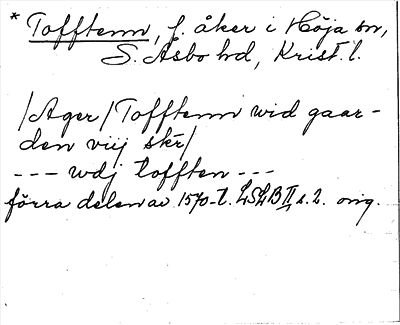 * Tofftenn, f. åker i Höja sn,
S. Åsbo hd, Krist. l.
/Ager/ Tofftenn wid gaar-
den viij skr/
--- wdj tofften ---
förra delen av 1570-t. LSLB II s. 2. orig.